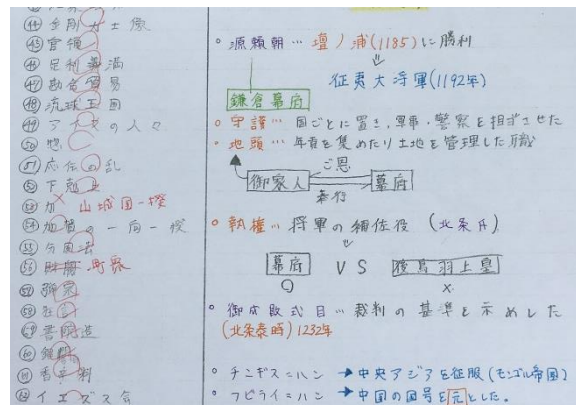 ㊹金剛力士像
㊺管領
㊻足利義満
㊼勘合貿易
㊽琉球王国
㊾アイヌの人々
㊿惣
51 応仁の乱
52 下剋上
53 山城国一揆
54 加賀の一向一揆
55 分国法
56 町衆
58
59 書院造
60
61 香辛料
62 イエズス会
○源頼朝…壇ノ浦(1185)に勝利
征夷大将軍(1192年)
鎌倉幕府
○守護…国ごとに置き、軍事・警察を担当させた
○地頭…年貢を集めたり土地を管理した職
ご恩
御家人 幕府
奉行
○執権…将軍の補佐役 (北条氏)
幕府 VS 後鳥羽上皇
○ ×
○御成敗式目…裁判の基準を示めした
(北条泰時)1232年
○チンギス=ハン→中央アジアを征服(モンゴル帝国)
○フビライ=ハン→中国の国号を元とした。